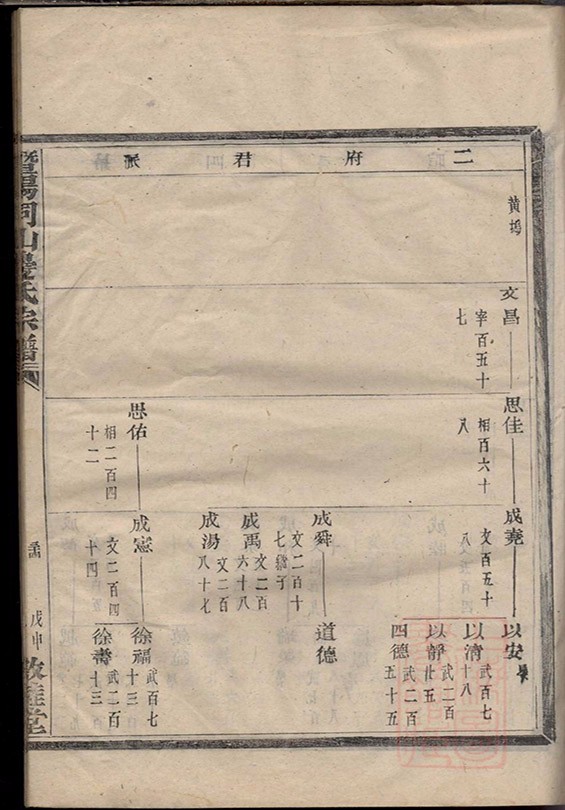 二府君派
黄塢
文昌
宰百五十
七
思佳
相百六十
八
思佑
相二百四
十二
成堯
文百五十
八
成舜
文二百十
七
成禹
文二百
六十八
成湯
文二百
八十七
成憲
文二百四
十四
以安
以清
武百七
十八
以靜
武二百
廿五
四德
武二百
五十五
道德
徐福
武百七
十三
徐壽
武二百
十三
暨陽同山邊氏宗譜
戊申
敦睦堂